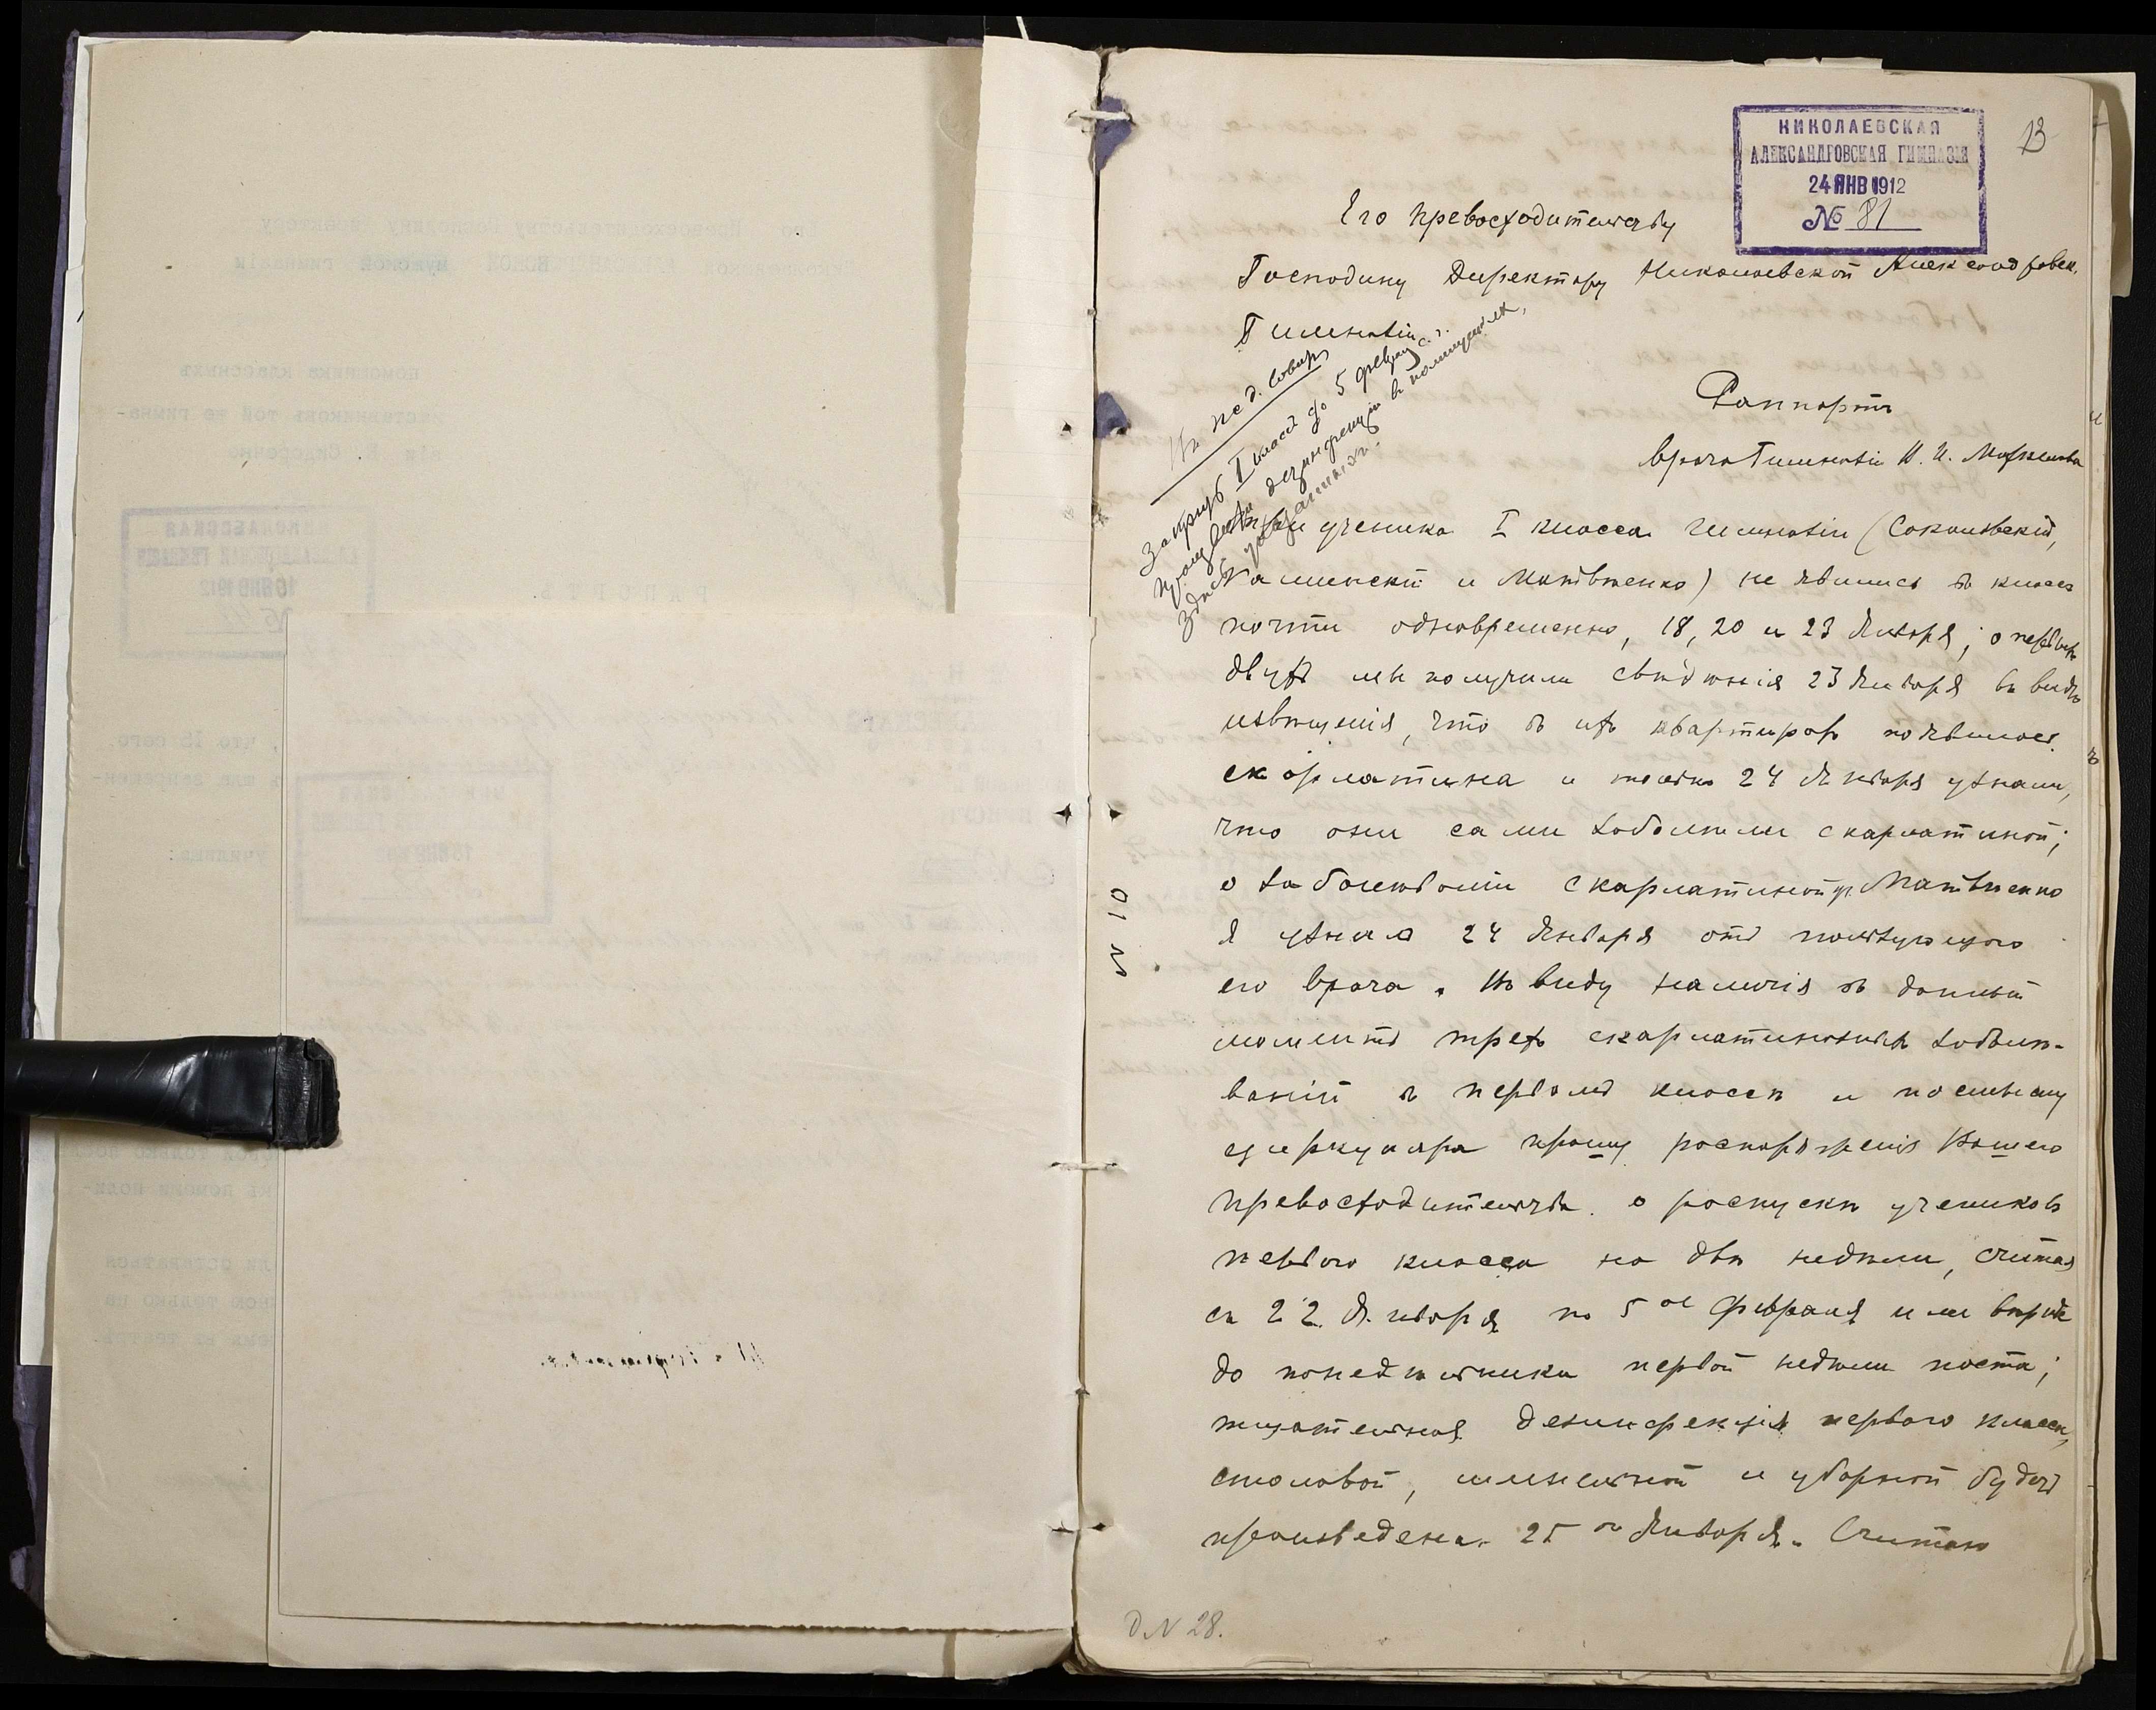 НИКОЛАЕВСКАЯ
АЛЕКСАНДРОВСКАЯ ГИМНАЗІЯ
24 ЯНВ 1912
№ 81
13
Его Превосходительству
Господину Директору Николаевской Александровск.
Гимназіи
Въ пед. совѣтъ
Закрыть I классъ до 5 февраля с. г.
Произвести дезинфекцію въ помѣщеніяхъ,
здѣсь указанныхъ.
Раппортъ
врача Гимназіи Н. И.
Три ученика I класса гимназіи (Соколовскій,
Каминскій и Матвѣенко) не явились въ классъ
почти одновременно, 18, 20 и 23 Января; о первыхъ
двухъ мы получили свѣдѣнія 23 Января въ видѣ
извѣщенія, что въ ихъ квартирахъ появилась
скарлатина и только 24 Января узнали,
что они сами заболѣли скарлатиной;
о заболѣваніи скарлатиной уч. Матвѣенко
я узналъ 24 Января отъ пользующаго
его врача. Въ виду наличія въ данный
моментъ трехъ скарлатинозныхъ заболѣ-
ваній въ первомъ классѣ и по смыслу
циркуляра прошу распоряженія Вашего
Превосходительства о роспускѣ учениковъ
перваго класса на двѣ недѣли, считая
съ 22 Января по 5ое Февраля или вѣрнѣе
до понедѣльника первой недѣли поста;
тщательная дезинфекція перваго класса,
столовой, шинельной и уборной будетъ
произведена 25го Января. Считаю
Д. N 28.